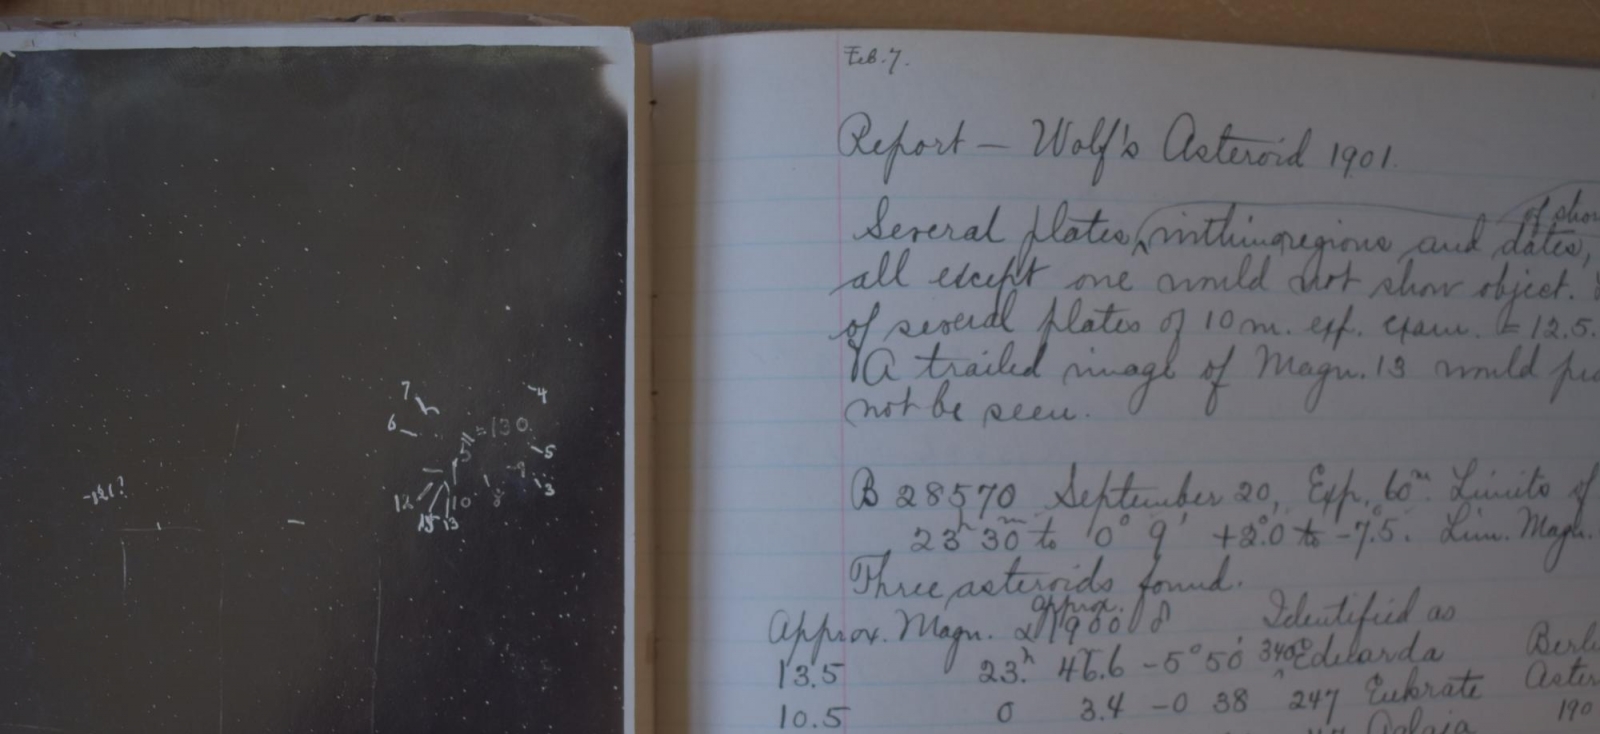 Feb. 7.
Report — Wolf's Asteroid 1901.
of show
Several plates, within regions and dates,
all except one would not show object.
of several plates of 10 m. exp. exam. = 12.5.
A trailed image of Magn. 13 would
not be seen.
B 28570 September 20, Exp. 60m. Limits of
23h 30m to 0° 9' +2°.0 to -7°.5. Lim. Magn.
Three asteroids found.
approx.
Approx. Magn. α 1900 δ Identified as
13.5 23h 46.6 -5° 50' 340 Eduarda Berli
Aster
10.5 0 3.4 -0 38 247 Eukrate 190
Aglaja
7
4
6
130
5
5
9
3
12
10
8
15
13
121?